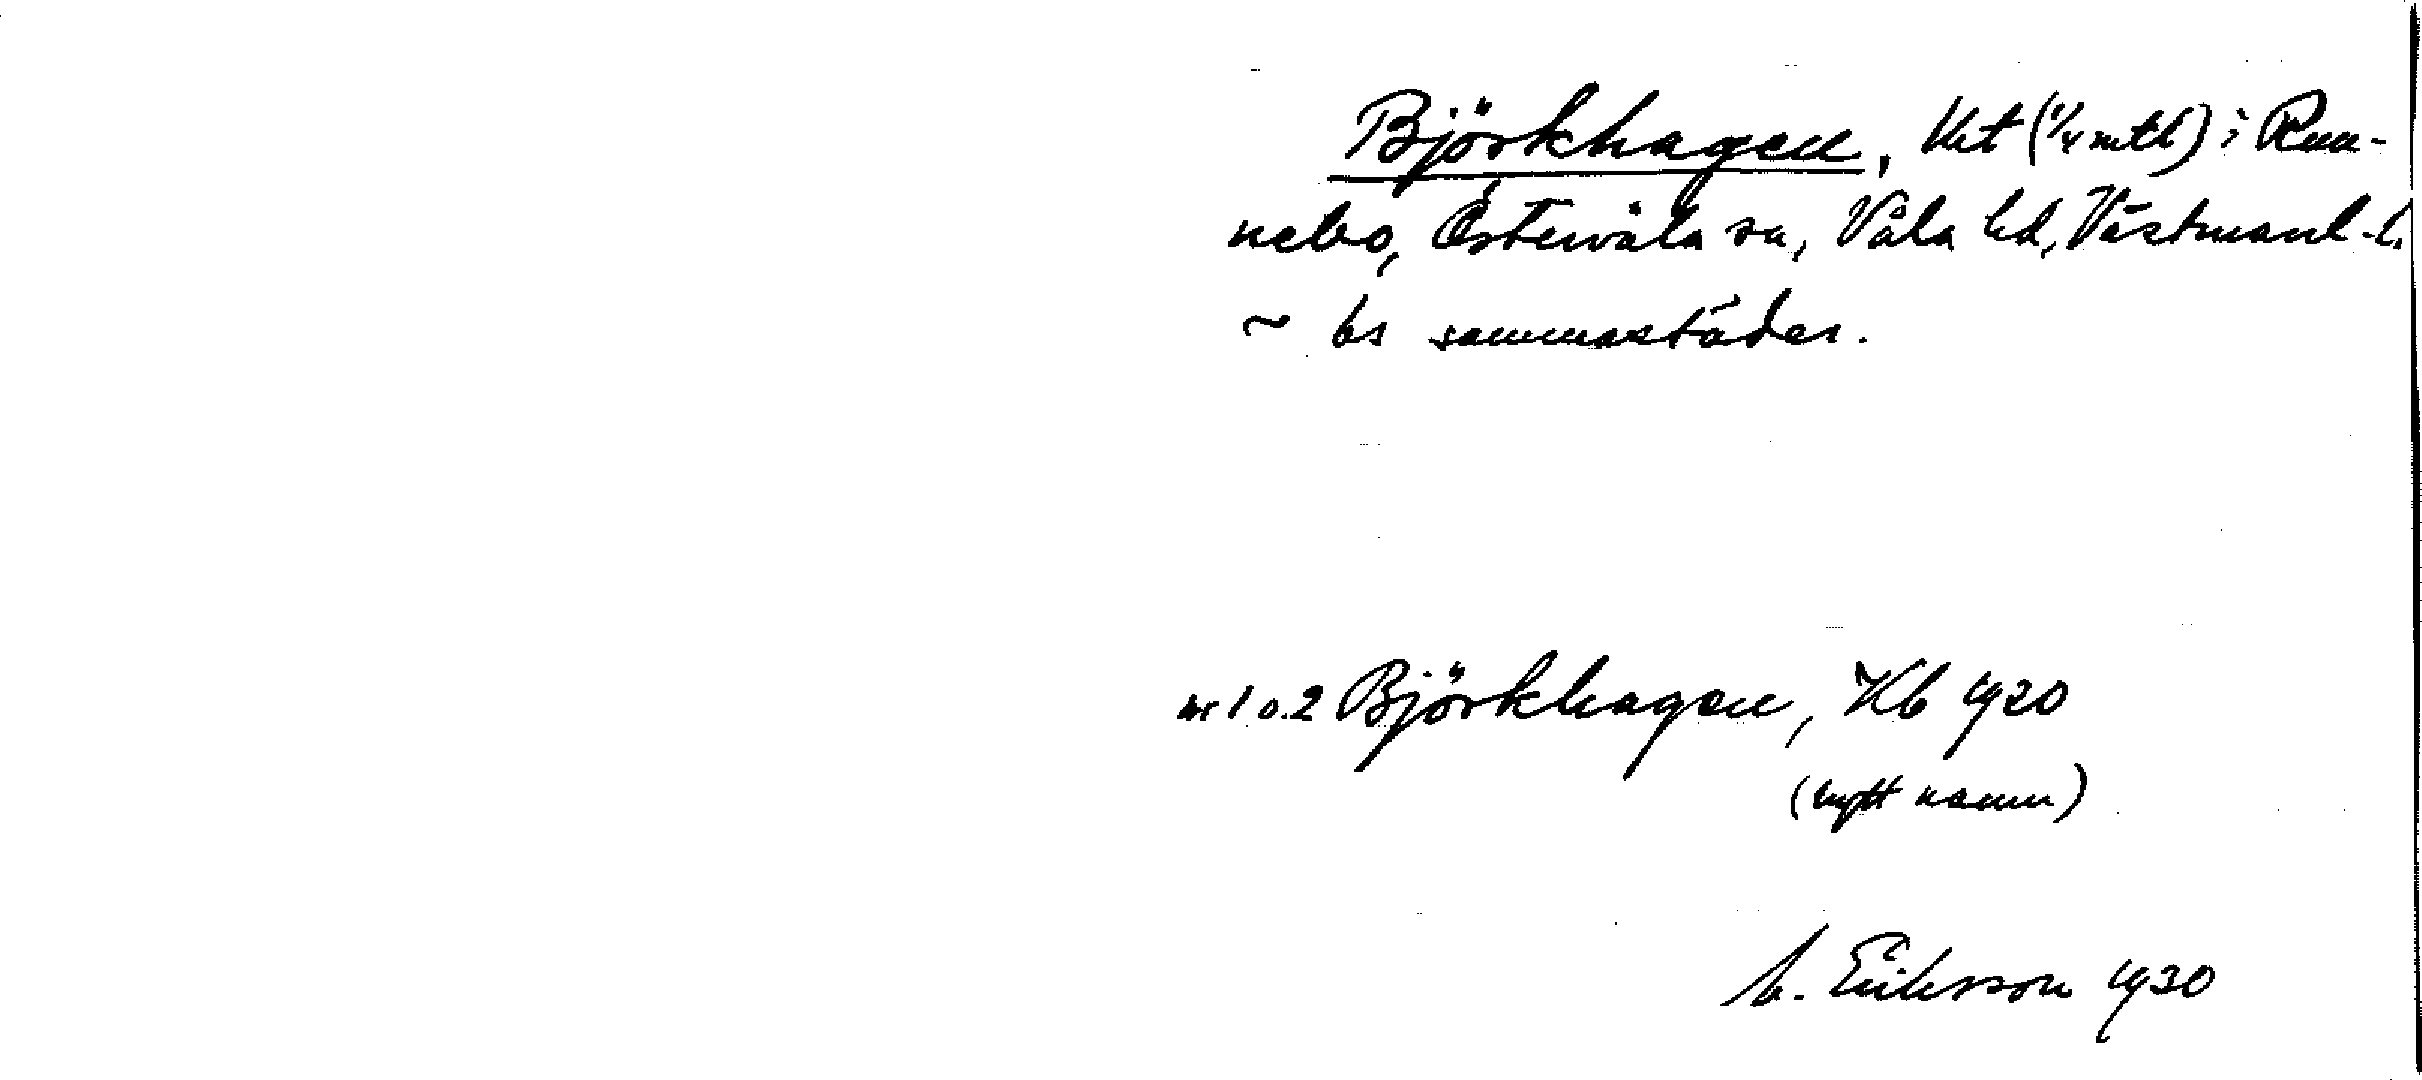 Björkhagen, Ket (1/4 mtl) i Run-
nebo, Östervåla sn, Våla hd, Västmanl. l.
~ bs sammastädes.
nr 1 o. 2 Björkhagen, Kb 1920
(nytt namn)
M. Eriksson 1930